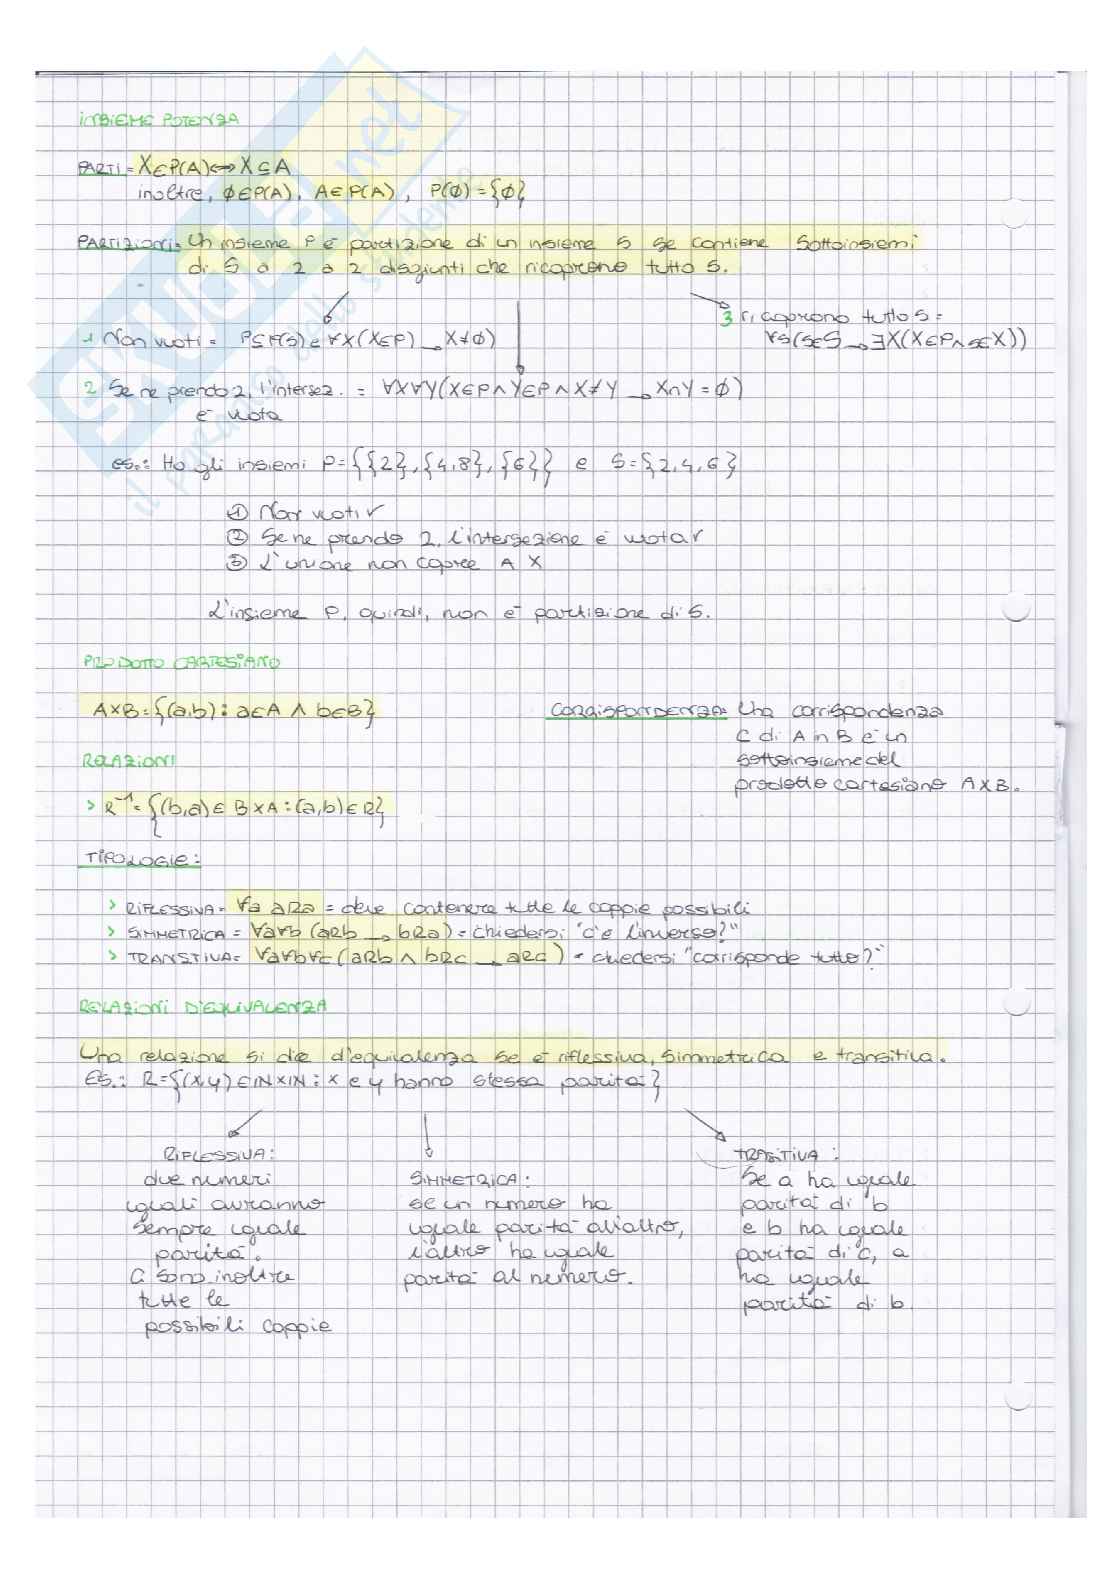 INSIEME POTENZA
PARTI = X∈P(A)⟺X⊆A
inoltre, ϕ∈P(A), A∈P(A), P(ϕ)={ϕ}
PARTIZIONI= Un insieme P è partizione di un insieme S se contiene sottoinsiemi
di S a 2 a 2 disgiunti che ricoprono tutto S.
1 Non vuoti = P⊆P(S) e ∀X(X∈P) → X≠ϕ)
3 ricoprono tutto S =
∀s(s∈S → ∃X(X∈P∧s∈X))
2 Se ne prendo 2, l'intersez. = ∀X∀Y(X∈P∧Y∈P∧X≠Y → X∩Y=ϕ)
è vuota
es.: Ho gli insiemi P={{2},{4,8},{6}} e S={2,4,6}
① Non vuoti ✓
② Se ne prendo 2, l'intersezione è vuota ✓
③ L'unione non copre A X
L'insieme P, quindi, non è partizione di S.
PRODOTTO CARTESIANO
A×B={(a,b): a∈A ∧ b∈B}
CORRISPONDENZA: Una corrispondenza
C di A in B è un
sottoinsieme del
prodotto cartesiano A×B.
RELAZIONI
> R⁻¹={(b,a)∈ B×A:(a,b)∈R}
TIPOLOGIE:
> RIFLESSIVA= ∀a aRa = deve contenere tutte le coppie possibili
> SIMMETRICA = ∀a∀b (aRb → bRa) = chiedersi "c'è l'inverso?"
> TRANSTIVA= ∀a∀b∀c(aRb ∧ bRc → aRc) = chiedersi "corrisponde tutto?"
RELAZIONI D'EQUIVALENZA
Una relazione si dice d'equivalenza se è riflessiva, simmetrica e transitiva.
ES.: R={(x,y)∈ℕ×ℕ: x e y hanno stessa parità}
RIFLESSIVA:
due numeri
uguali avranno
sempre uguale
parità.
Ci sono inoltre
tutte le
possibili coppie
SIMMETRICA:
se un numero ha
uguale parità all'altro,
l'altro ha uguale
parità al numero.
TRASITIVA:
Se a ha uguale
parità di b
e b ha uguale
parità di c, a
ha uguale
parità di b.